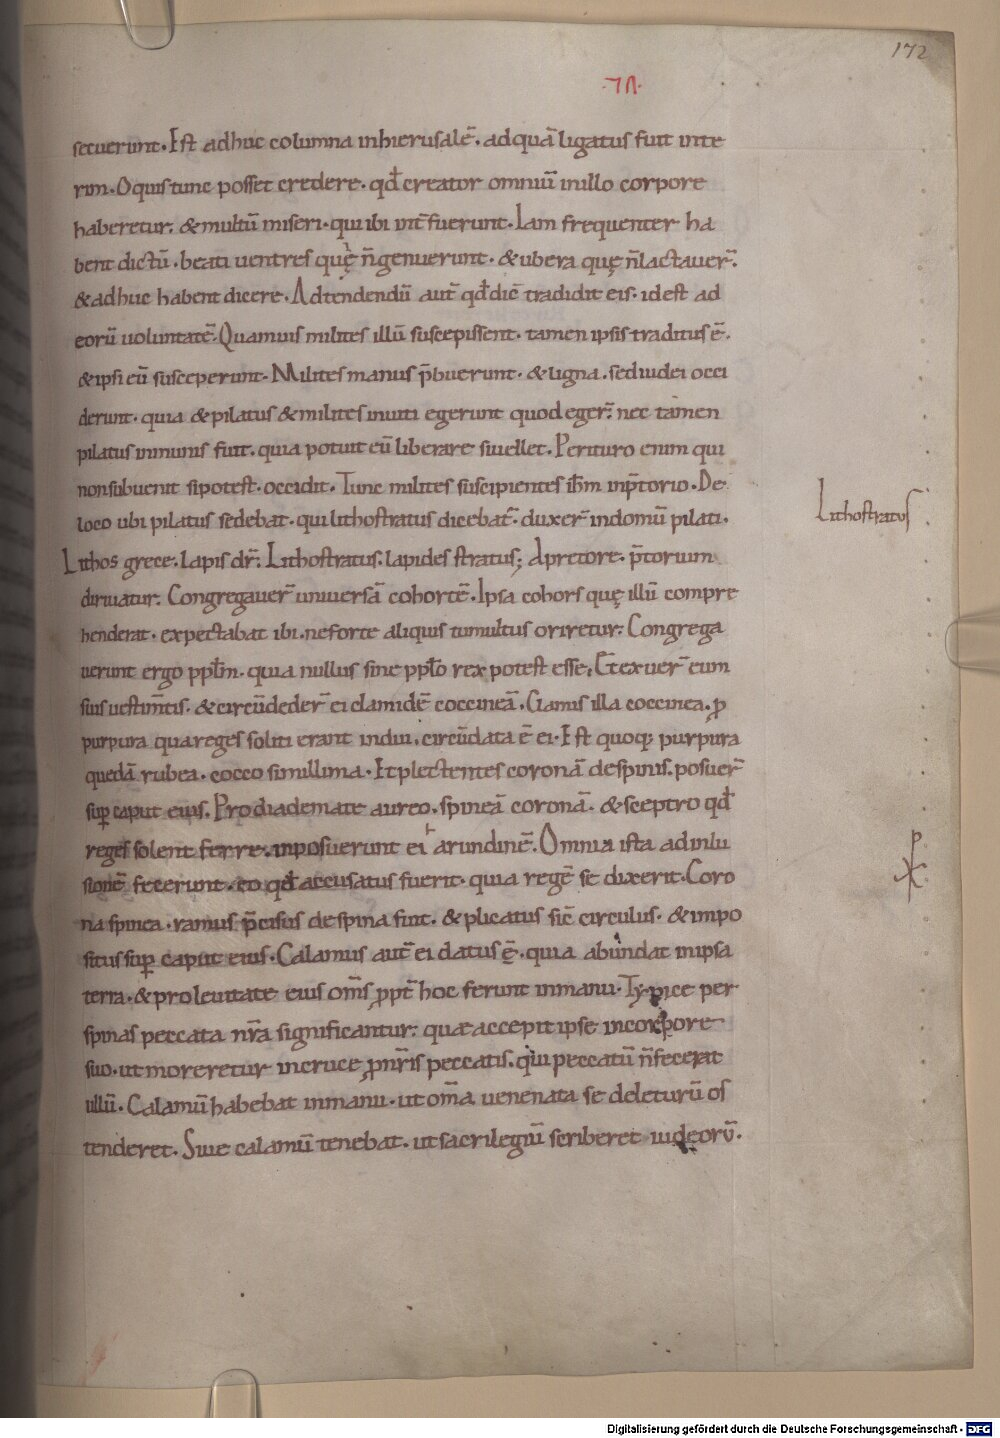 172
·⁊П·
secuerunt. Est adhuc columna inhierusalē. adquā ligatus fuit inte
rim. Oquis tunc posset credere. qđ creator omniū inillo corpore
haberetur. & multū miseri. qui ibi int̄fuerunt. Iam frequenter ha
bent dictū. beati uentres quę n̄ genuerunt. & ubera quę n̄ lactauer̄.
& adhuc habent dicere. Adtendendū aut̄ qđ dic̄ tradidit eis. idest ad
eorū uoluntatē. Quamuis milites illū suscepissent. tamen ipsis traditus ē.
& ipsi eū susceperunt. Milites manus p̄buerunt. & ligna. sed iudei occi
derunt. quia & pilatus & milites inuiti egerunt quod eger̄. nec tamen
pilatus inmunis fuit. quia potuit eū liberare siuellet. Perituro enim qui
nonsubuenit sipotest. occidit. Tunc milites suscipientes ih̄m inp̄torio. De
loco ubi pilatus sedebat. qui lithostratus dicebat̄. duxer̄ indomū pilati.
Lithostratus
Lithos grece. lapis dr̄. Lithostratus. lapides stratus; Apretore. p̄torium
diriuatur. Congregauer̄ uniuersā cohortē. Ipsa cohors quę illū compre
henderat. expectabat ibi. neforte aliquis tumultus oriretur. Congrega
uerunt ergo ppłm. quia nullus sine ppło rex potest esse. Et exuer̄ eum
suis uestim̄tis. & circūdeder̄ ei clamidē coccineā. Clamis illa coccinea. ꝓ
purpura qua reges soliti erant indui. circūdata ē ei. Est quoq; purpura
quedā rubea. cocco simillima. Et plectentes coronā despinis. posuer̄
suꝑ caput eius. Pro diademate aureo. spineā coronā. & sceptro qđ
reges solent ferre. inposuerunt ei arundinē. Omnia ista adinlu
sionē fecerunt. eo qđ accusatus fuerit. quia regē se dixerit. Coro
na spinea. ramus p̄cisus despina fuit. & plicatus sic̄ circulus. & impo
situs suꝑ caput eius. Calamus aut̄ ei datus ē. quia abundat inipsa
terra. & pro leuitate eius om̄s ꝓpt̄ hoc ferunt inmanu. Typice per
spinas peccata nr̄a significantur. quae accepit ipse incorpore
suo. ut moreretur incruce ꝓ nr̄is peccatis. qui peccatū n̄ fecerat
ullū. Calamū habebat inmanu. ut om̄a uenenata se deleturū os
tenderet. Siue calamū tenebat. ut sacrilegiū scriberet iudeorū.
Digitalisierung gefördert durch die Deutsche Forschungsgemeinschaft - DFG